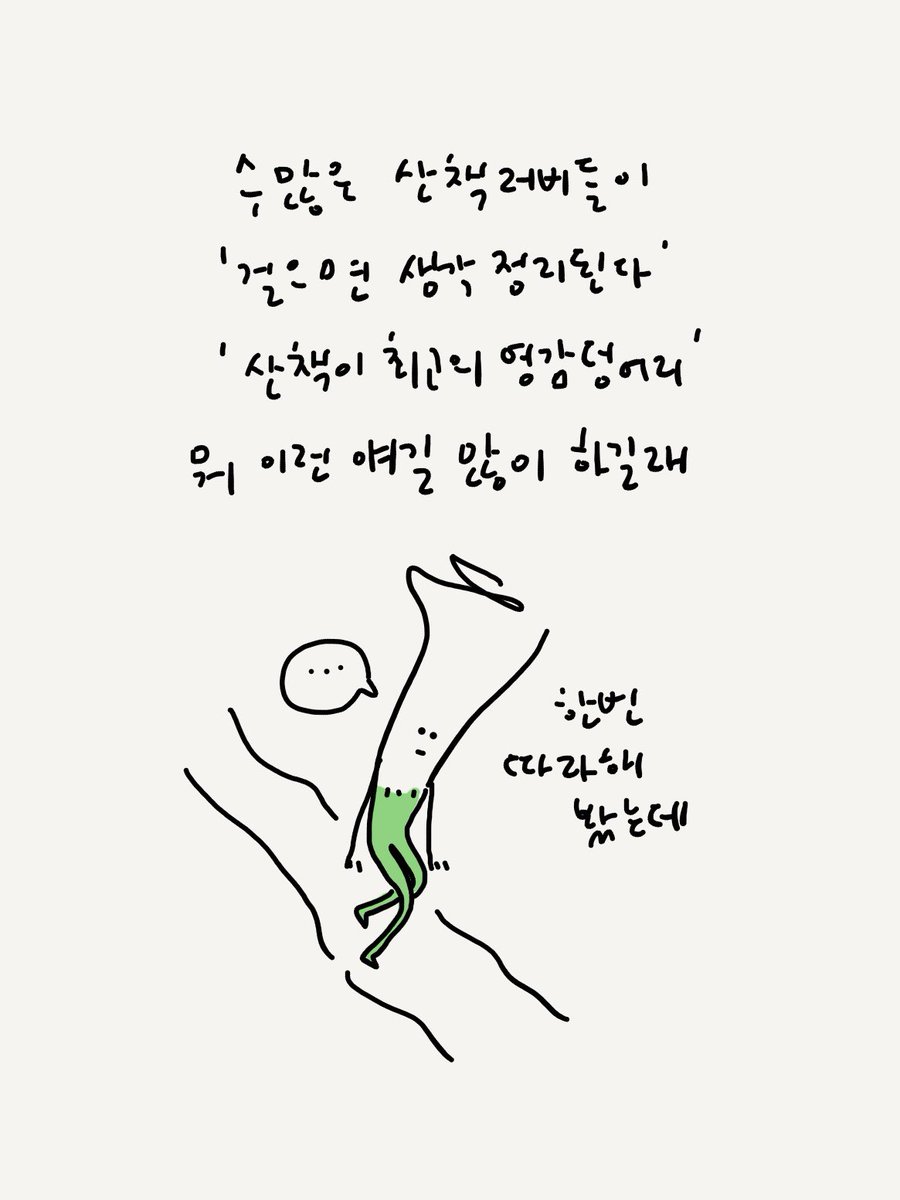 수많은 산책러버들이
'걸으면 생각 정리된다'
'산책이 최고의 영감덩어리'
뭐 이런 얘길 많이 하길래
...
한번
따라해
봤는데